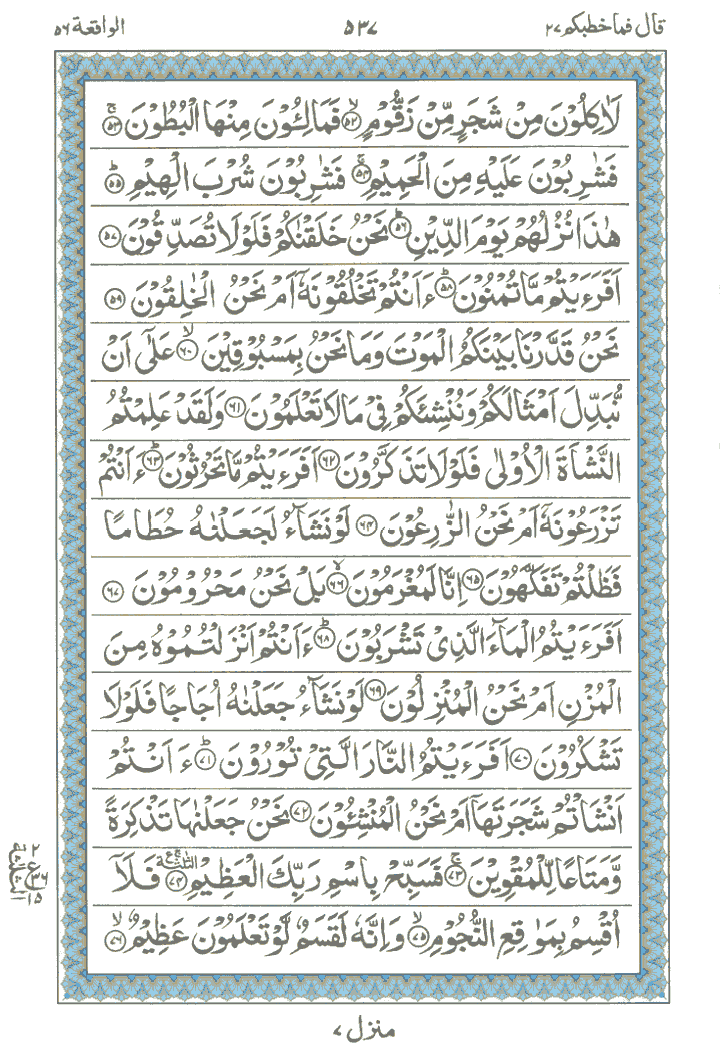 قال فما خطبكم ٢٧
٥٣٧
الواقعة ٥٦
لَاٰكِلُوْنَ مِنْ شَجَرٍ مِّنْ زَقُّوْمٍ ۙ﴿٥٢﴾ فَمَالِـُٔوْنَ مِنْهَا الْبُطُوْنَ ۚ﴿٥٣﴾
فَشٰرِبُوْنَ عَلَيْهِ مِنَ الْحَمِيْمِ ۚ﴿٥٤﴾ فَشٰرِبُوْنَ شُرْبَ الْهِيْمِ ؕ﴿٥٥﴾
هٰذَا نُزُلُهُمْ يَوْمَ الدِّيْنِ ؕ﴿٥٦﴾ نَحْنُ خَلَقْنٰكُمْ فَلَوْلَا تُصَدِّقُوْنَ ﴿٥٧﴾
اَفَرَءَيْتُمْ مَّا تُمْنُوْنَ ؕ﴿٥٨﴾ ءَاَنْتُمْ تَخْلُقُوْنَهٗۤ اَمْ نَحْنُ الْخٰلِقُوْنَ ﴿٥٩﴾
نَحْنُ قَدَّرْنَا بَيْنَكُمُ الْمَوْتَ وَمَا نَحْنُ بِمَسْبُوْقِيْنَ ۙ﴿٦٠﴾ عَلٰٓى اَنْ
نُّبَدِّلَ اَمْثَالَكُمْ وَنُنْشِئَكُمْ فِيْ مَا لَا تَعْلَمُوْنَ ﴿٦١﴾ وَلَقَدْ عَلِمْتُمُ
النَّشْاَةَ الْاُوْلٰى فَلَوْلَا تَذَكَّرُوْنَ ﴿٦٢﴾ اَفَرَءَيْتُمْ مَّا تَحْرُثُوْنَ ؕ﴿٦٣﴾ ءَاَنْتُمْ
تَزْرَعُوْنَهٗۤ اَمْ نَحْنُ الزّٰرِعُوْنَ ﴿٦٤﴾ لَوْ نَشَآءُ لَجَعَلْنٰهُ حُطَامًا
فَظَلْتُمْ تَفَكَّهُوْنَ ﴿٦٥﴾ اِنَّا لَمُغْرَمُوْنَ ۙ﴿٦٦﴾ بَلْ نَحْنُ مَحْرُوْمُوْنَ ﴿٦٧﴾
اَفَرَءَيْتُمُ الْمَآءَ الَّذِيْ تَشْرَبُوْنَ ؕ﴿٦٨﴾ ءَاَنْتُمْ اَنْزَلْتُمُوْهُ مِنَ
الْمُزْنِ اَمْ نَحْنُ الْمُنْزِلُوْنَ ﴿٦٩﴾ لَوْ نَشَآءُ جَعَلْنٰهُ اُجَاجًا فَلَوْلَا
تَشْكُرُوْنَ ﴿٧٠﴾ اَفَرَءَيْتُمُ النَّارَ الَّتِيْ تُوْرُوْنَ ؕ﴿٧١﴾ ءَاَنْتُمْ
اَنْشَاْتُمْ شَجَرَتَهَاۤ اَمْ نَحْنُ الْمُنْشِـُٔوْنَ ﴿٧٢﴾ نَحْنُ جَعَلْنٰهَا تَذْكِرَةً
وَّمَتَاعًا لِّلْمُقْوِيْنَ ۚ﴿٧٣﴾ فَسَبِّحْ بِاسْمِ رَبِّكَ الْعَظِيْمِ ﴿٧٤﴾ فَلَاۤ
اُقْسِمُ بِمَوٰقِعِ النُّجُوْمِ ۙ﴿٧٥﴾ وَاِنَّهٗ لَقَسَمٌ لَّوْ تَعْلَمُوْنَ عَظِيْمٌ ۙ﴿٧٦﴾
٢
ع
٣٦
١٥
منزل ٧